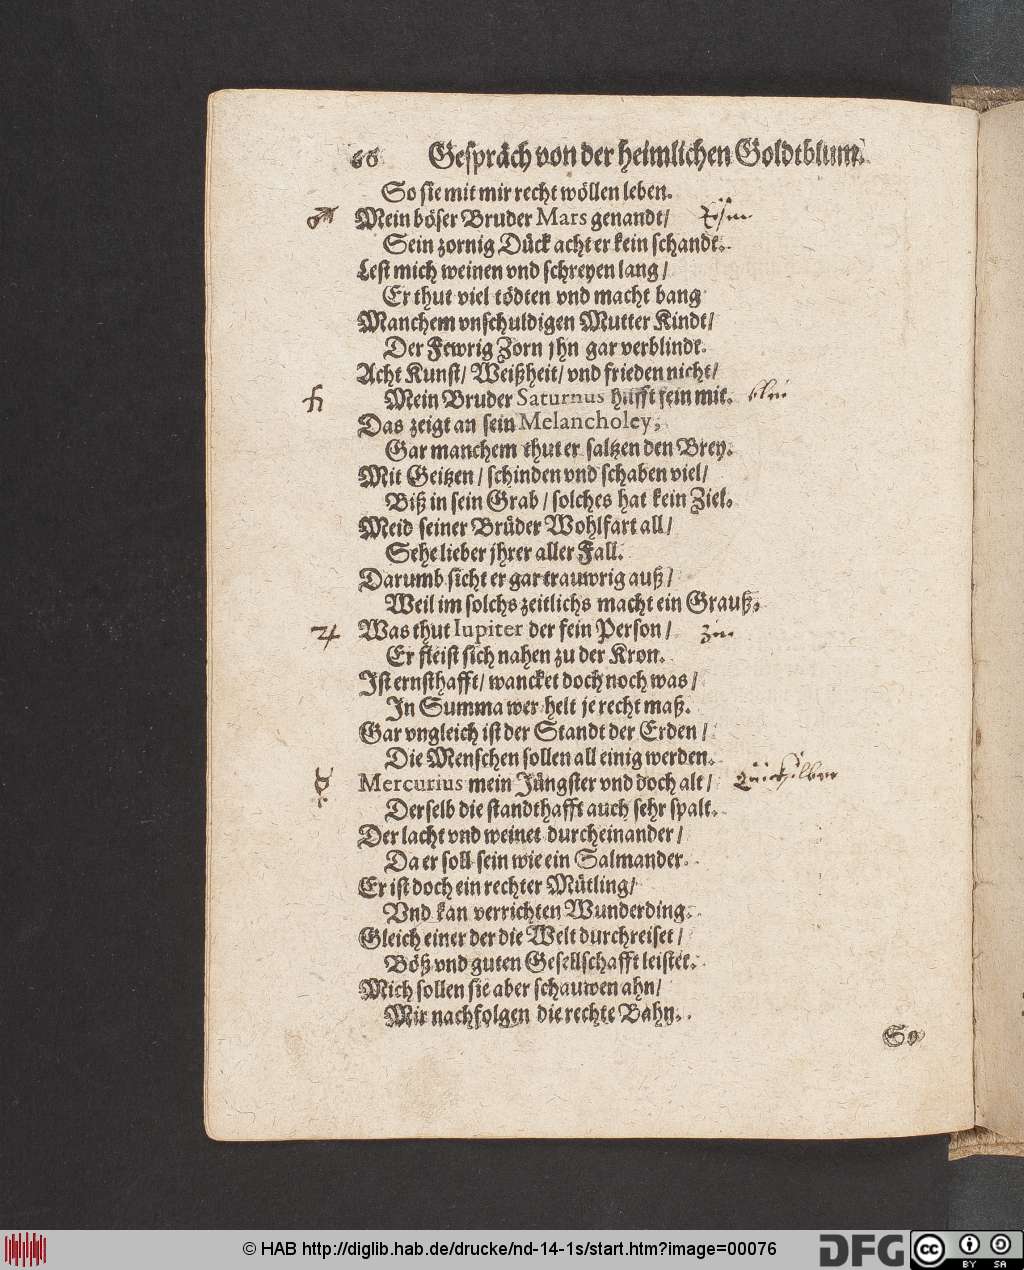 66 Gespräch von der heimlichen Goldtblum.
So sie mit mir recht wöllen leben.
♂ Mein böser Bruder Mars genandt/ Eisen
Sein zornig Dück acht er kein schandt.
Lest mich weinen vnd schreyen lang/
Er thut viel tödten vnd macht bang
Manchem vnschuldigen Mutter Kindt/
Der Fewrig Zorn jhn gar verblindt.
Acht Kunst/ Weißheit/ vnd frieden nicht/
♄ Mein Bruder Saturnus hilfft fein mit. blei
Das zeigt an sein Melancholey,
Gar manchem thut er saltzen den Brey.
Mit Geitzen/ schinden vnd schaben viel/
Biß in sein Grab/ solches hat kein Ziel.
Meid seiner Brüder Wohlfart all/
Sehe lieber jhrer aller Fall.
Darumb sicht er gar trauwrig auß/
Weil im solchs zeitlichs macht ein Grauß.
♃ Was thut Iupiter der fein Person/ Zin
Er fleist sich nahen zu der Kron.
Ist ernsthafft/ wancket doch noch was/
In Summa wer helt je recht maß.
Gar vngleich ist der Standt der Erden/
Die Menschen sollen all einig werden.
☿ Mercurius mein Jüngster vnd doch alt/ Quicksilber
Derselb die standthafft auch sehr spalt.
Der lacht vnd weinet durcheinander/
Da er soll sein wie ein Salmander.
Er ist doch ein rechter Mütling/
Vnd kan verrichten Wunderding.
Gleich einer der die Welt durchreiset/
Böß vnd guten Gesellschafft leistet.
Mich sollen sie aber schauwen ahn/
Mir nachfolgen die rechte Bahn.
So
© HAB http://diglib.hab.de/drucke/nd-14-1s/start.htm?image=00076
DFG
cc BY SA